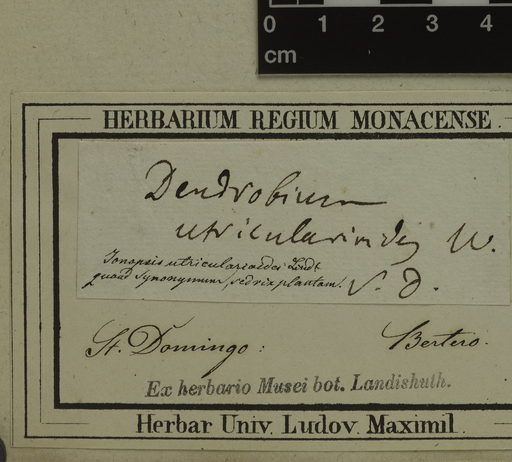 0 1 2 3 4
cm
HERBARIUM REGIUM MONACENSE.
Dendrobium
utricularioides W.
Jonopsis utricularioides Lindl
quoad Synonymum, sed vix plantam.
S. D.
St. Domingo:
Bertero.
Ex herbario Musei bot. Landishuth.
Herbar Univ. Ludov. Maximil.